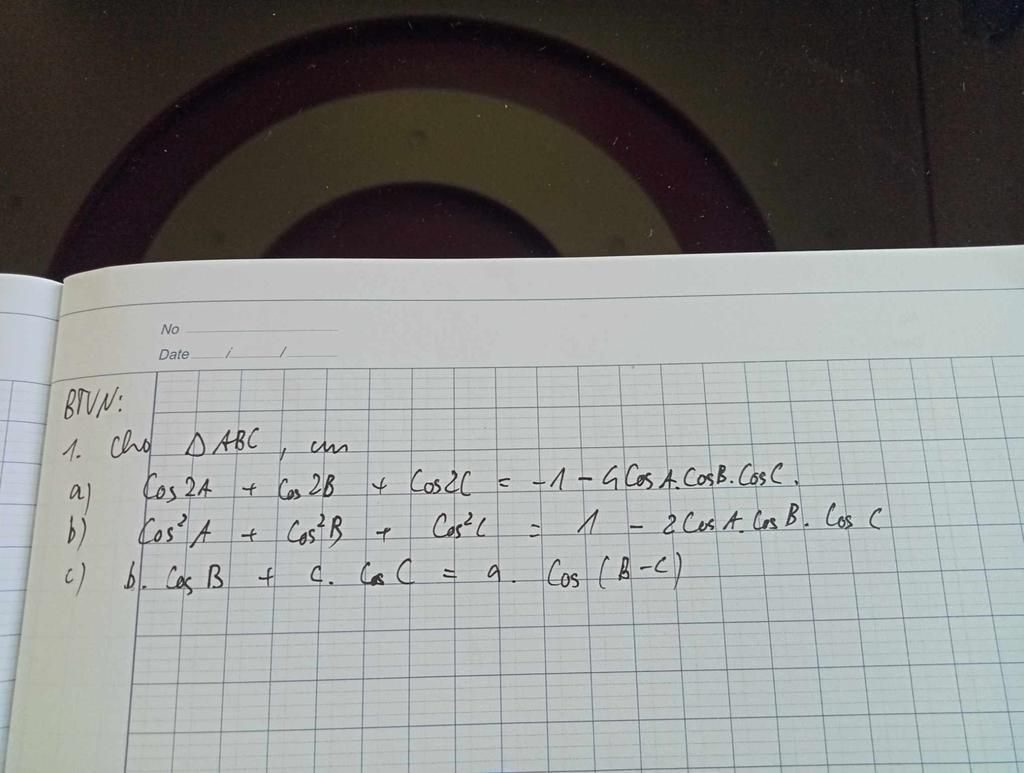 No
Date / /
BTVN:
1. Cho Δ ABC, cm
a) Cos 2A + Cos 2B + Cos 2C = -1 - 4 Cos A. Cos B. Cos C.
b) Cos² A + Cos² B + Cos² C = 1 - 2 Cos A. Cos B. Cos C
c) b. Cos B + c. Cos C = a. Cos (B - C)